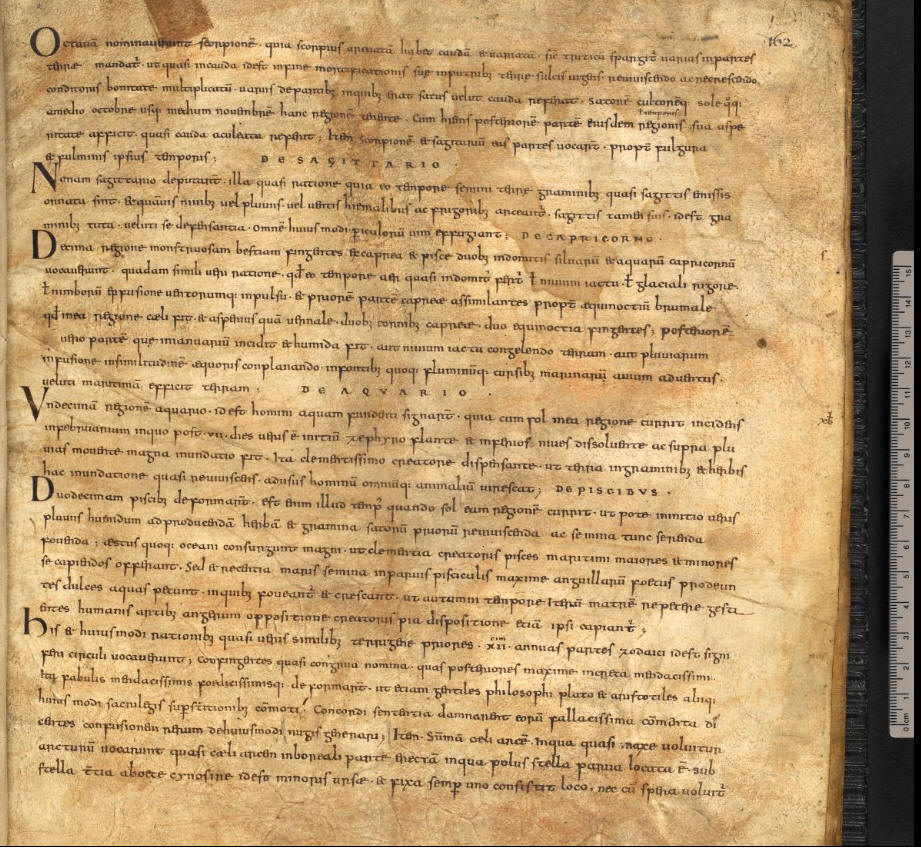 162
Octauā nominauerunt scorpionē · quia scorpius armatā habet caudā & uariatā · sic
terrae mandat̄ · ut quasi in cauda id est in fine mortificationis suę in putrib; terrae sulcis uirgens reuiuiscendo ac recrescendo
conditoris bonitate multiplicatū · uarus de partib; in quib; erat satus uelut cauda
a medio octobre usq; medium nouembrem hanc regionē · Cum hiems posteriorē partē eiusdem regionis sua aspe
temporis
ritate afficit · quasi cauda aculeata · Item scorpionē & sagitariū eius partes uocant · propt̄ fulgura
& fulminis ipsius temporis ;
DE SAGITTARIO ·
Nonam sagittario deputant̄ · illa quasi ratione quia eo tempore semini terrae graminib; quasi sagittis emissis
ornatu sint · & quāuis nimb; uel pluuiis · uel uentis hiemalibus ac frigorib; · sagittis tamen suis · id est gra
minib; tuta · ueluti se defensantia · omnē huius modi periculorū uim effugiant ; DE CAPRICORNO ·
Decima regione monstruosam bestiam fingentes · & caprea & pisce duob; indomitis siluarū & aquarū capricornū
uocauerunt · quadam simili ueri ratione · qd̄ eo tempore aer quasi indomit̄ fert̄ ł niuium iactu · ł glaciali rigore ·
ł nimborū effusione uentorumq; impulsu · & priorē partē capreae assimilantes propt̄ ęquinoctiū brumale
qd̄ in ea regione cęli fit · & asperius quā uernale · duob; cornib; capreae · duo ęquinoctia fingentes ; posteriorē
uero partē quę in ianuariū incidit & humida fit · aut niuium iactu congelendo terram · aut pluuiarum
infusione in similitudinē ęquoris conplanando · in fontib; quoq; fluminūq; cursib; marinarū auium aduentus ·
ueluti maritimā efficit terram ·
DE AQVARIO ·
Vndecimā regionē aquario · id est homini aquam fundenti signant̄ · quia cum sol in ea regione currit incidens
in februarium in quo post · uii · dies ueris ē initiū zephyro flante & imperiosę niues dissoluente ac supra plu
uias mouente magna inundatio fit · Ita clementissimo creatore dispensante · ut terra in graminib; & herbis
hac inundatione quasi reuiuiscens · ad usus hominū omniūq; animaliū uirescat ; DE PISCIBVS ·
Duodecimam piscib; deformant̄ · est enim illud temp' quando sol eam regionē currit · ut pote in initio ueris
pluuiis humidum ad producendā herbam & gramina satorū priorū reuiuiscenda ac semina tunc serenda
fouenda ; ęstus quoq; oceani consurgunt magni · ut clementia creatoris pisces maritimi maiores & minores
se capiendos offerant · Sed & recentia maris semina in paruis pisciculis maxime anguillarū foetus prodeun
tes dulces aquas petunt · in quib; foueant̄ & crescant̄ · ut autumni tempore iterū matrē
entes humanis artib; angerum oppositione creatoris pia dispositione etiā ipsi capiant̄ ;
his & huiusmodi rationibus quasi ueris similib; terrigenę priores · xii · annuas partes zodiaci id est sign
feri circuli uocauerunt ; confingentes quasi congrua nomina · quas posteriores maxime in creta mendacissimi ·
fabulis mendacissimis foedissimisq; deformant̄ · ut etiam gentiles philosophi plato & aristotiles aliiq;
huius modi sacrilegis superstitionib; cōmoti · Concordi sententia damnarent eorū fallacissima cōmenta
centes confusionem rerum de huiuscemodi nugis generari ; Item · Summā celi arcē · in qua quasi axe uoluitur
arcturū uocarunt quasi cæli arcem in boreali parte erectā in qua polus stella parua locata ē · sub
stella tertia abente cynosure id est minoris ursę · & fixa semp uno consistit loco · nec cū spera uoluit̄